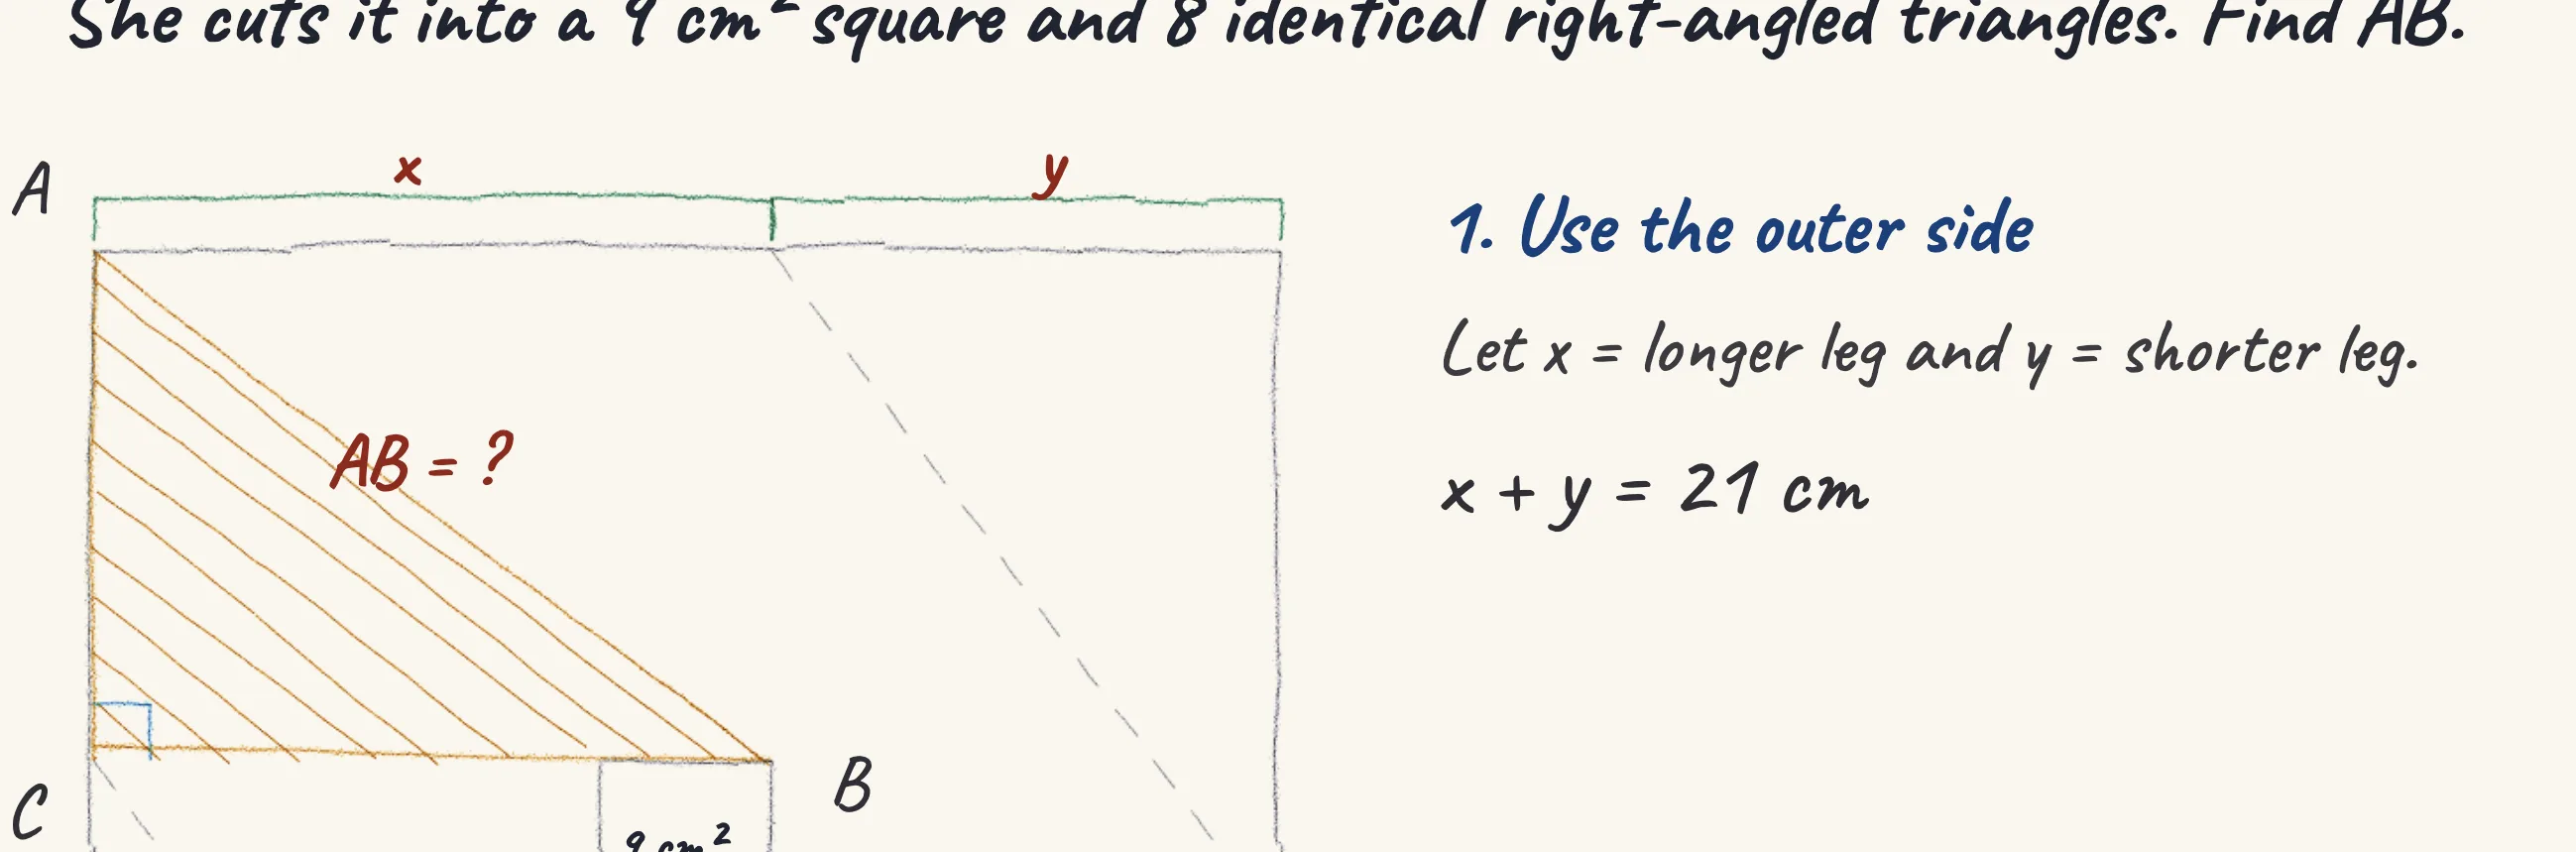 She cuts it into a 9 cm² square and 8 identical right-angled triangles. Find AB.
x
y
A
1. Use the outer side
Let x = longer leg and y = shorter leg.
AB = ?
x + y = 21 cm
B
C
9 cm²